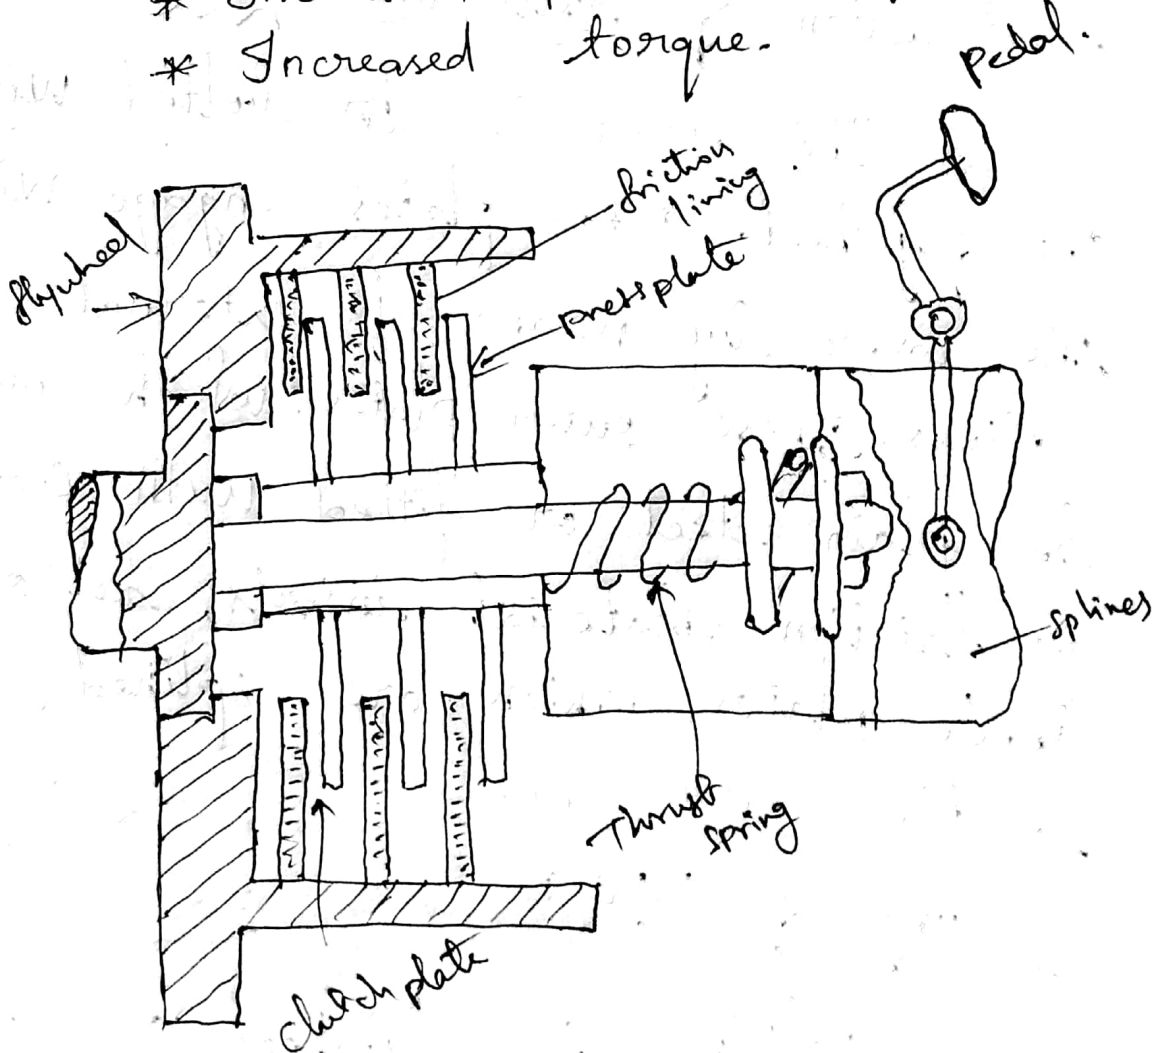 * Increased torque.
pedal.
friction
lining
flywheel
pressplate
splines
Thrust
spring
clutch plate